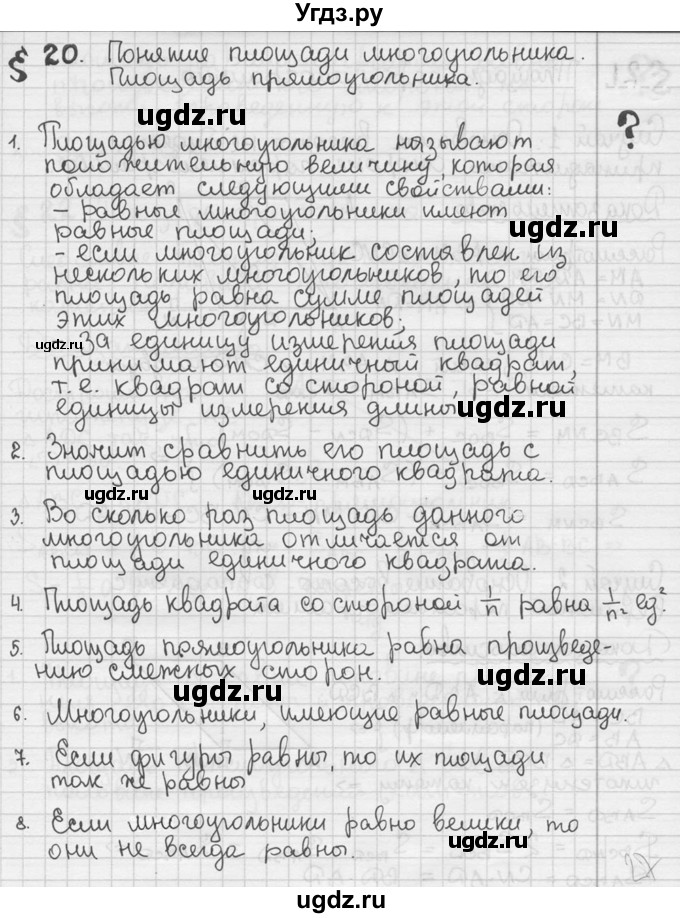 Угдз.ру
§ 20. Понятие площади многоугольника.
Площадь прямоугольника.
ugdz.ru
?
1. Площадью многоугольника называют
положительную величину, которая
обладает следующими свойствами:
- равные многоугольники имеют
равные площади;
ugdz.ru
- если многоугольник составлен из
нескольких многоугольников, то его
площадь равна сумме площадей
этих многоугольников;
ugdz.ru
За единицу измерения площади
принимают единичный квадрат,
т.е. квадрат со стороной, равной
единицы измерения длины
ugdz.ru
2. Значит сравнить его площадь с
площадью единичного квадрата.
ugdz.ru ugdz.ru
3. Во сколько раз площадь данного
многоугольника отличается от
площади единичного квадрата.
4. Площадь квадрата со стороной 1/n равна 1/n² ед².
5. Площадь прямоугольника равна произведе-
нию смежных сторон.
ugdz.ru ugdz.ru
6. Многоугольники, имеющие равные площади.
7. Если фигуры равны, то их площади
так же равны
ugdz.ru
8. Если многоугольники равно велики, то
они не всегда равны.
ugdz.ru